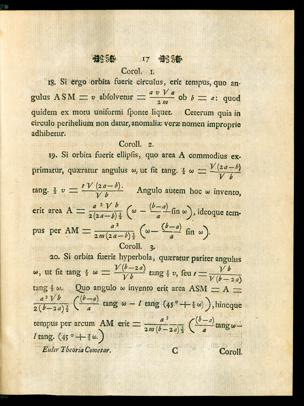 17
Corol. 1.
18. Si ergo orbita fuerit circulus, erit tempus, quo an-
gulus ASM = v absolvetur = a v √a / 2m ob b = a: quod
quidem ex motu uniformi sponte liquet. Ceterum quia in
circulo perihelium non datur, anomaliæ veræ nomen improprie
adhibetur.
Corol. 2.
19. Si orbita fuerit ellipsis, quo area A commodius ex-
primatur, quæratur angulus ω, ut sit tang. ½ ω = √(2a−b) / √b
tang. ½ v = t √(2a−b) / √b. Angulo autem hoc ω invento,
erit area A = a² √b / 2(2a−b)½ (ω − (b−a)/a sin ω), ideoque tem-
pus per AM = a² / 2m(2a−b)½ (ω − (b−a)/a sin ω).
Corol. 3.
20. Si orbita fuerit hyperbola, quæratur pariter angulus
ω, ut sit tang ½ ω = √(b−2a) / √b tang ½ v, seu t = √b / √(b−2a)
tang ½ ω. Quo angulo ω invento erit area ASM = A =
a² √b / 2(b−2a)½ ((b−a)/a tang ω − l tang (45°+½ω)), hincque
tempus per arcum AM erit = a² / 2m(b−2a)½ ((b−a)/a tang ω −
l tang. (45°+½ω)).
Euler Theoria Cometar. C Coroll.